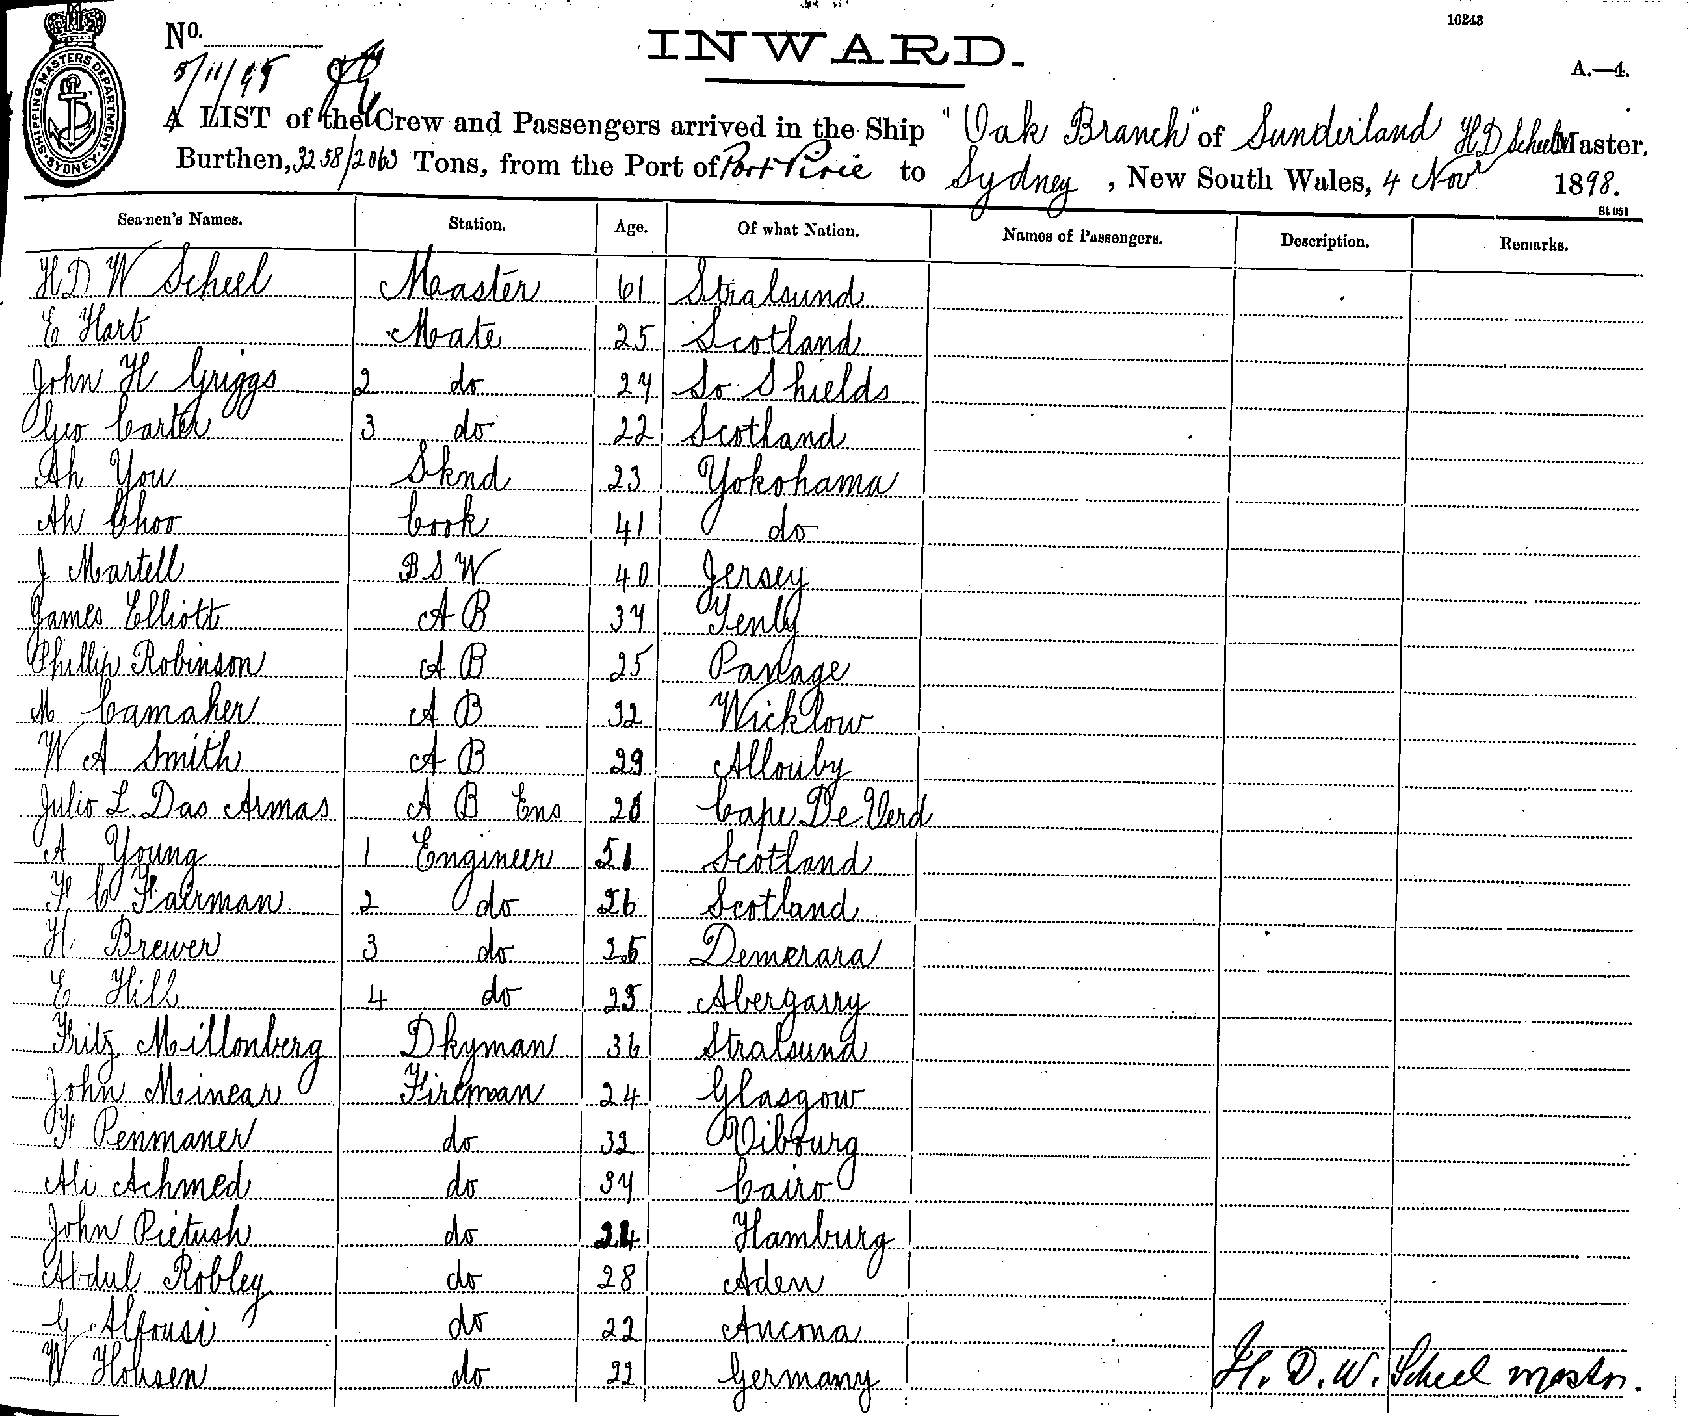 10243
No.
INWARD.
A.—4.
5/11/98
A LIST of the Crew and Passengers arrived in the Ship "Oak Branch" of Sunderland H D Scheel Master,
Burthen, 3258/2063 Tons, from the Port of Port Pirie to Sydney, New South Wales, 4 Novr 1898.
SHIPPING MASTERS DEPARTMENT SYDNEY
St 051
Seamen's Names. Station. Age. Of what Nation. Names of Passengers. Description. Remarks.
H D W Scheel Master 61 Stralsund
E Hart Mate 25 Scotland
John H Griggs 2 do 27 So Shields
Geo Carter 3 do 22 Scotland
Ah You Sknd 23 Yokohama
Ah Choo Cook 41 do
J Martell B S W 40 Jersey
James Elliott A B 37 Tenby
Phillip Robinson A B 25 Panage
M Camaher A B 32 Wicklow
W A Smith A B 29 Allonby
Julio L. Das Armas A B Ens Cape De Verd
A Young 1 Engineer 51 Scotland
F C Fairman 2 do 26 Scotland
H Brewer 3 do Demerara
E Hill 4 do 25 Abergarry
Fritz Millonberg Dkyman 36 Stralsund
John Minear Fireman 24 Glasgow
F Penmaner do 32 Vibourg
Ali Achmed do 37 Cairo
John Pietush do 24 Hamburg
Abdul Robley do 28 Aden
G Alfousi do 22 Ancona
W Hohsen do 22 Germany
H. D. W. Scheel master.